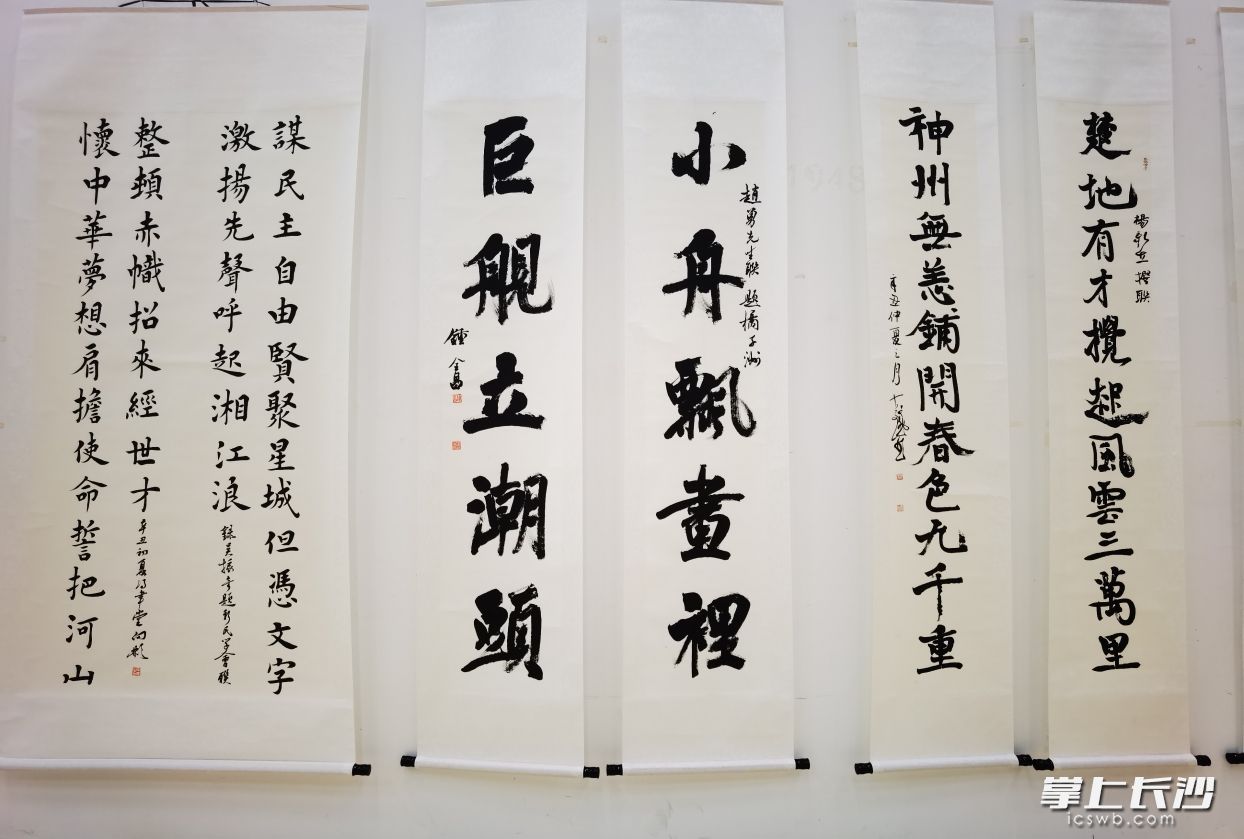 楚地有才攪起風雲三萬里
撰聯
神州無恙鋪開春色九千重
辛丑仲夏之月
小舟飄畫裡
趙勇先生聯題橘子洲
巨舰立潮頭
謀民主自由賢聚星城但憑文字
激揚先聲呼起湘江浪
題新民學會聯
懷中華夢想肩擔使命誓把河山
整頓赤幟招來經世才
辛丑初夏
掌上长沙
icswb.com